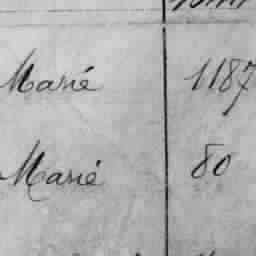 Marié 1187
Marié 80